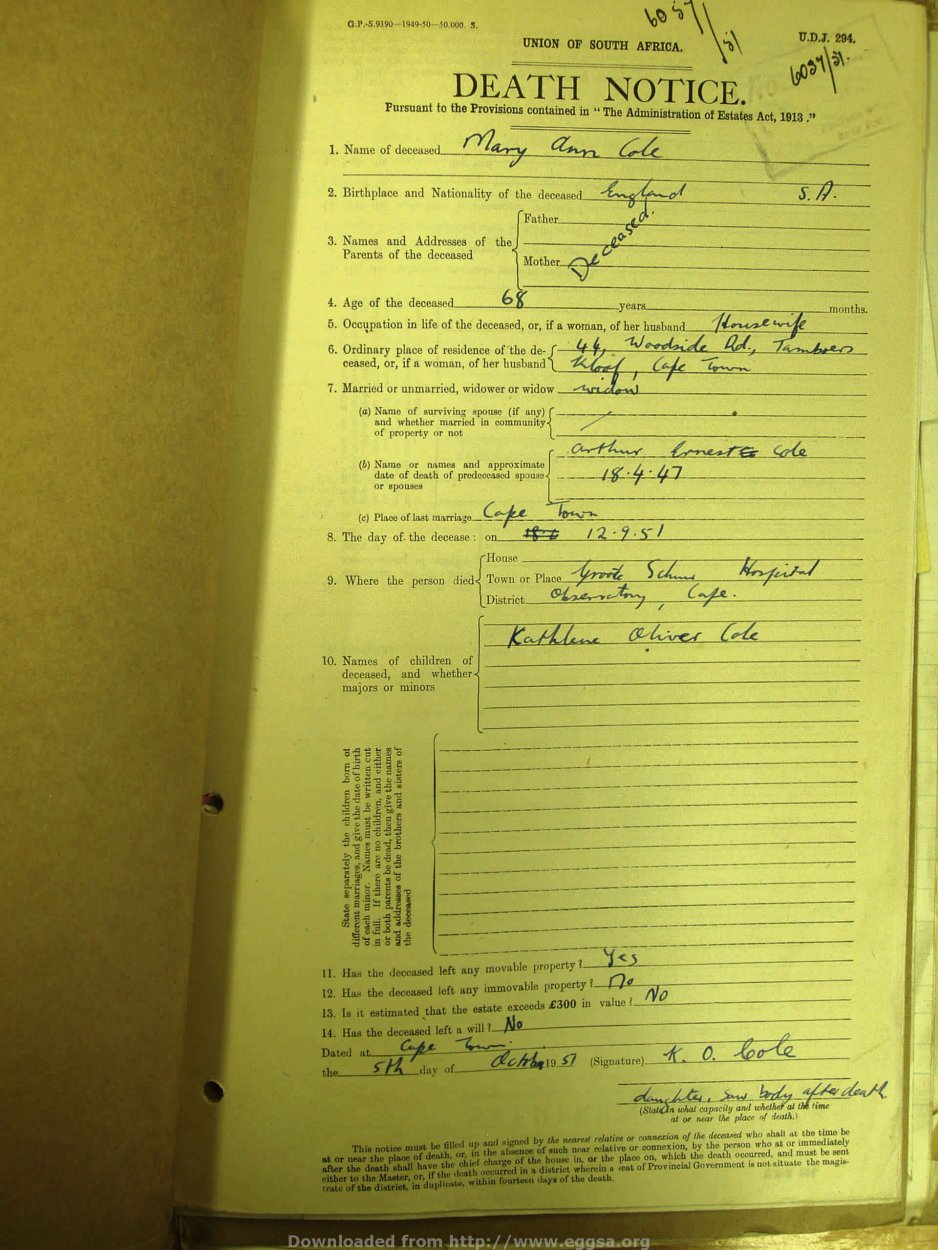 G.P.-S.9390—1949-50—50,000. S.
6037/51
UNION OF SOUTH AFRICA.
U.D.J. 294.
6037/51.
DEATH NOTICE.
Pursuant to the Provisions contained in " The Administration of Estates Act, 1913 ."
1. Name of deceased Mary Ann Cole
2. Birthplace and Nationality of the deceased England S.A.
3. Names and Addresses of the Parents of the deceased
Father
Mother
Deceased.
4. Age of the deceased 68 years months.
5. Occupation in life of the deceased, or, if a woman, of her husband Housewife
6. Ordinary place of residence of the de- 44, Woodside Rd., Tamboers
ceased, or, if a woman, of her husband Kloof, Cape Town
7. Married or unmarried, widower or widow widow
(a) Name of surviving spouse (if any)
and whether married in community
of property or not
Arthur Ernest Cole
(b) Name or names and approximate
date of death of predeceased spouse 18.4.47
or spouses
(c) Place of last marriage Cape Town
8. The day of the decease: on 12.9.51
House
9. Where the person died Town or Place Groote Schuur Hospital
District Observatory, Cape.
Kathlene Oliver Cole
10. Names of children of
deceased, and whether
majors or minors
State separately the children born of
different marriages, and give the date of birth
of each minor. Names must be written out
in full. If there are no children, and either
or both parents be dead, then give the names
and addresses of the brothers and sisters of
the deceased
11. Has the deceased left any movable property? Yes
12. Has the deceased left any immovable property? No
13. Is it estimated that the estate exceeds £300 in value? No
14. Has the deceased left a will? No
Dated at Cape Town.
the 5th day of October 1951 (Signature) K. O. Cole
daughter, saw body after death
(State in what capacity and whether at the time
at or near the place of death.)
This notice must be filled up and signed by the nearest relative or connexion of the deceased who shall at the time be
at or near the place of death, or, in the absence of such near relative or connexion, by the person who at or immediately
after the death shall have the chief charge of the house in, or the place on, which the death occurred, and must be sent
either to the Master, or, if the death occurred in a district wherein a seat of Provincial Government is not situate the magis-
trate of the district, in duplicate, within fourteen days of the death.
Downloaded from http://www.eggsa.org